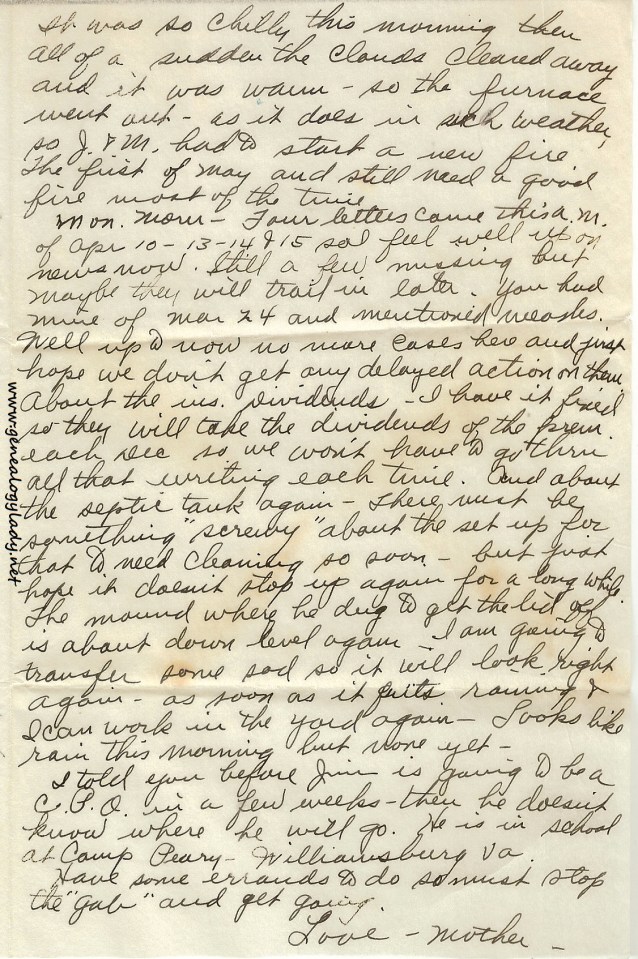 It was so chilly this morning then
all of a sudden the clouds cleared away
and it was warm - so the furnace
went out - as it does in such weather,
so J. & M. had to start a new fire
The first of May and still need a good
fire most of the time
Mon. Morn - Four letters came this a.m.
of Apr 10 - 13 - 14 & 15 so I feel well up on
news now. Still a few missing but
maybe they will trail in later. You had
mine of Mar 24 and mentioned measles.
Well up to now no more cases here and just
hope we don't get any delayed action on them
About the ins. dividends - I have it fixed
so they will take the dividends of the prem.
each Dec so we won't have to go thru
all that writing each time. And about
the septic tank again - There must be
something "screwy" about the set up for
that to need cleaning so soon - but just
hope it doesn't stop up again for a long while.
The mound where he dug to get the lid off
is about down level again - I am going to
transfer some sod so it will look right
again - as soon as it quits raining &
I can work in the yard again - Looks like
rain this morning but none yet -
I told you before Jim is going to be a
C.P.O. in a few weeks - then he doesn't
know where he will go. He is in school
at Camp Peary - Williamsburg Va.
Have some errands to do so must stop
the "gab" and get going.
Love - Mother -
www.genealogylady.net